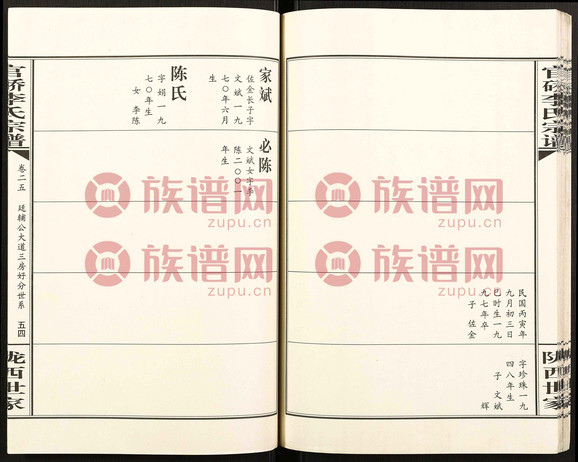 官硚李氏宗谱
陇西世家
民国丙寅年
九月初三日
巳时生一九
九七年卒
子 佐金
字珍珠一九
四八年生
子 文斌
辉
家斌
佐金长子字
文斌一九
七〇年六月
生
陈氏
字娟一九
七〇年生
女 李陈
必陈
文斌女字李
陈二〇〇一
年生
官硚李氏宗谱
卷二五 廷辅公大道三房好分世系 五四
陇西世家
族谱网
zupu.cn
族谱网
zupu.cn
族谱网
zupu.cn
族谱网
zupu.cn